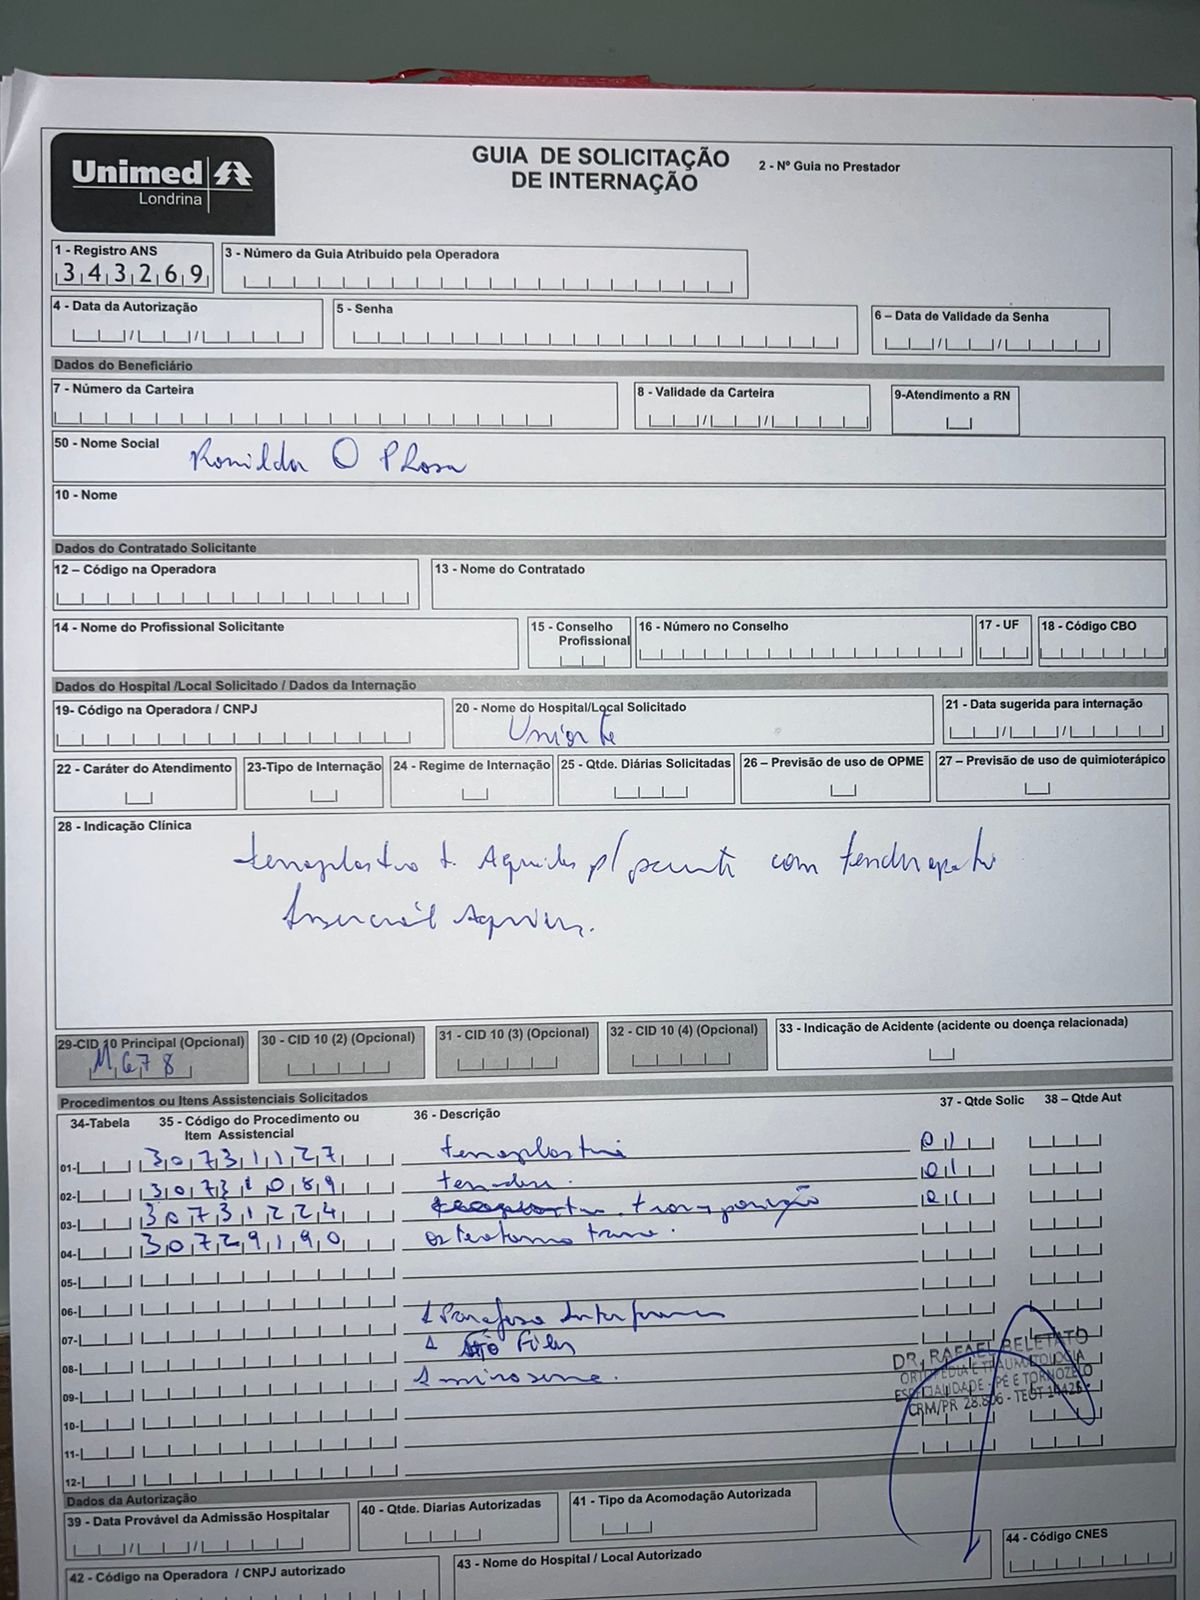 Unimed
Londrina
GUIA DE SOLICITAÇÃO
DE INTERNAÇÃO
2 - Nº Guia no Prestador
1 - Registro ANS
343269
3 - Número da Guia Atribuido pela Operadora
4 - Data da Autorização
5 - Senha
6 – Data de Validade da Senha
Dados do Beneficiário
7 - Número da Carteira
8 - Validade da Carteira
9-Atendimento a RN
50 - Nome Social
Ronilda O
10 - Nome
Dados do Contratado Solicitante
12 – Código na Operadora
13 - Nome do Contratado
14 - Nome do Profissional Solicitante
15 - Conselho Profissional
16 - Número no Conselho
17 - UF
18 - Código CBO
Dados do Hospital /Local Solicitado / Dados da Internação
19- Código na Operadora / CNPJ
20 - Nome do Hospital/Local Solicitado
21 - Data sugerida para internação
22 - Caráter do Atendimento
23-Tipo de Internação
24 - Regime de Internação
25 - Qtde. Diárias Solicitadas
26 – Previsão de uso de OPME
27 – Previsão de uso de quimioterápico
28 - Indicação Clínica
com
29-CID 10 Principal (Opcional)
M678
30 - CID 10 (2) (Opcional)
31 - CID 10 (3) (Opcional)
32 - CID 10 (4) (Opcional)
33 - Indicação de Acidente (acidente ou doença relacionada)
Procedimentos ou Itens Assistenciais Solicitados
34-Tabela
35 - Código do Procedimento ou Item Assistencial
36 - Descrição
37 - Qtde Solic
38 – Qtde Aut
01- 30731127 01
02- 01
03- 30731224 transposição 01
04- 30729190
05-
06-
07-
08-
09-
10-
11-
12-
DR. RAFAEL BELETATO
ORTOPEDIA E TRAUMATOLOGIA
ESPECIALIDADE - PÉ E TORNOZELO
CRM/PR 28.806 - TEOT
Dados da Autorização
39 - Data Provável da Admissão Hospitalar
40 - Qtde. Diarias Autorizadas
41 - Tipo da Acomodação Autorizada
42 - Código na Operadora / CNPJ autorizado
43 - Nome do Hospital / Local Autorizado
44 - Código CNES